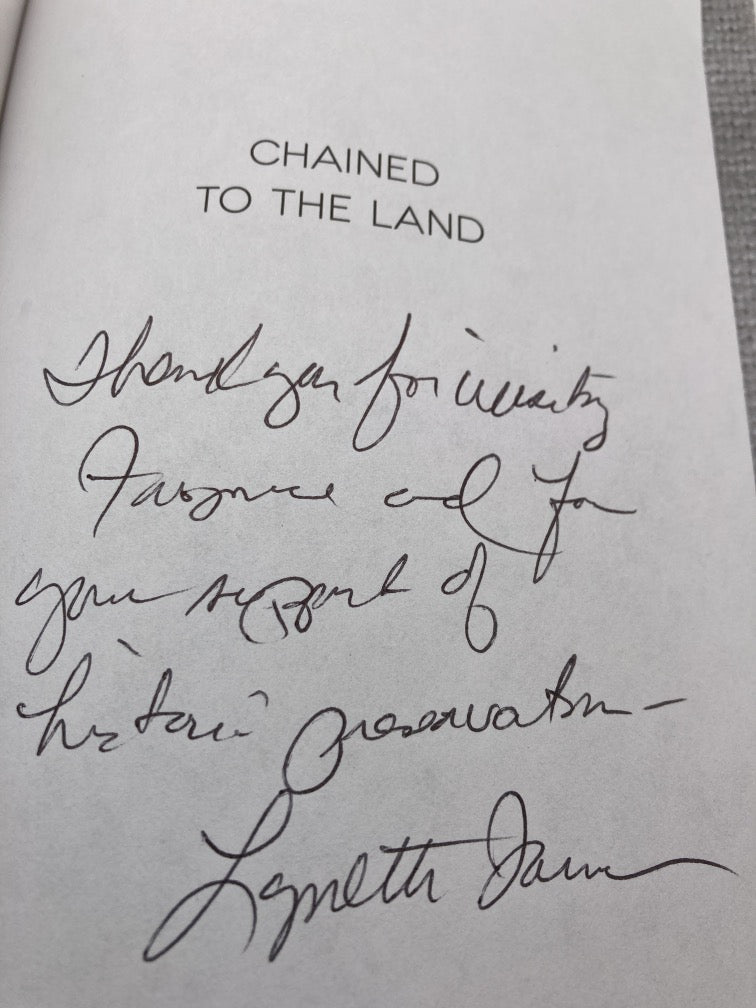 CHAINED
TO THE LAND
Thank you for visiting
Frogmore and for
your support of
historic preservation –
Lynette Tanner